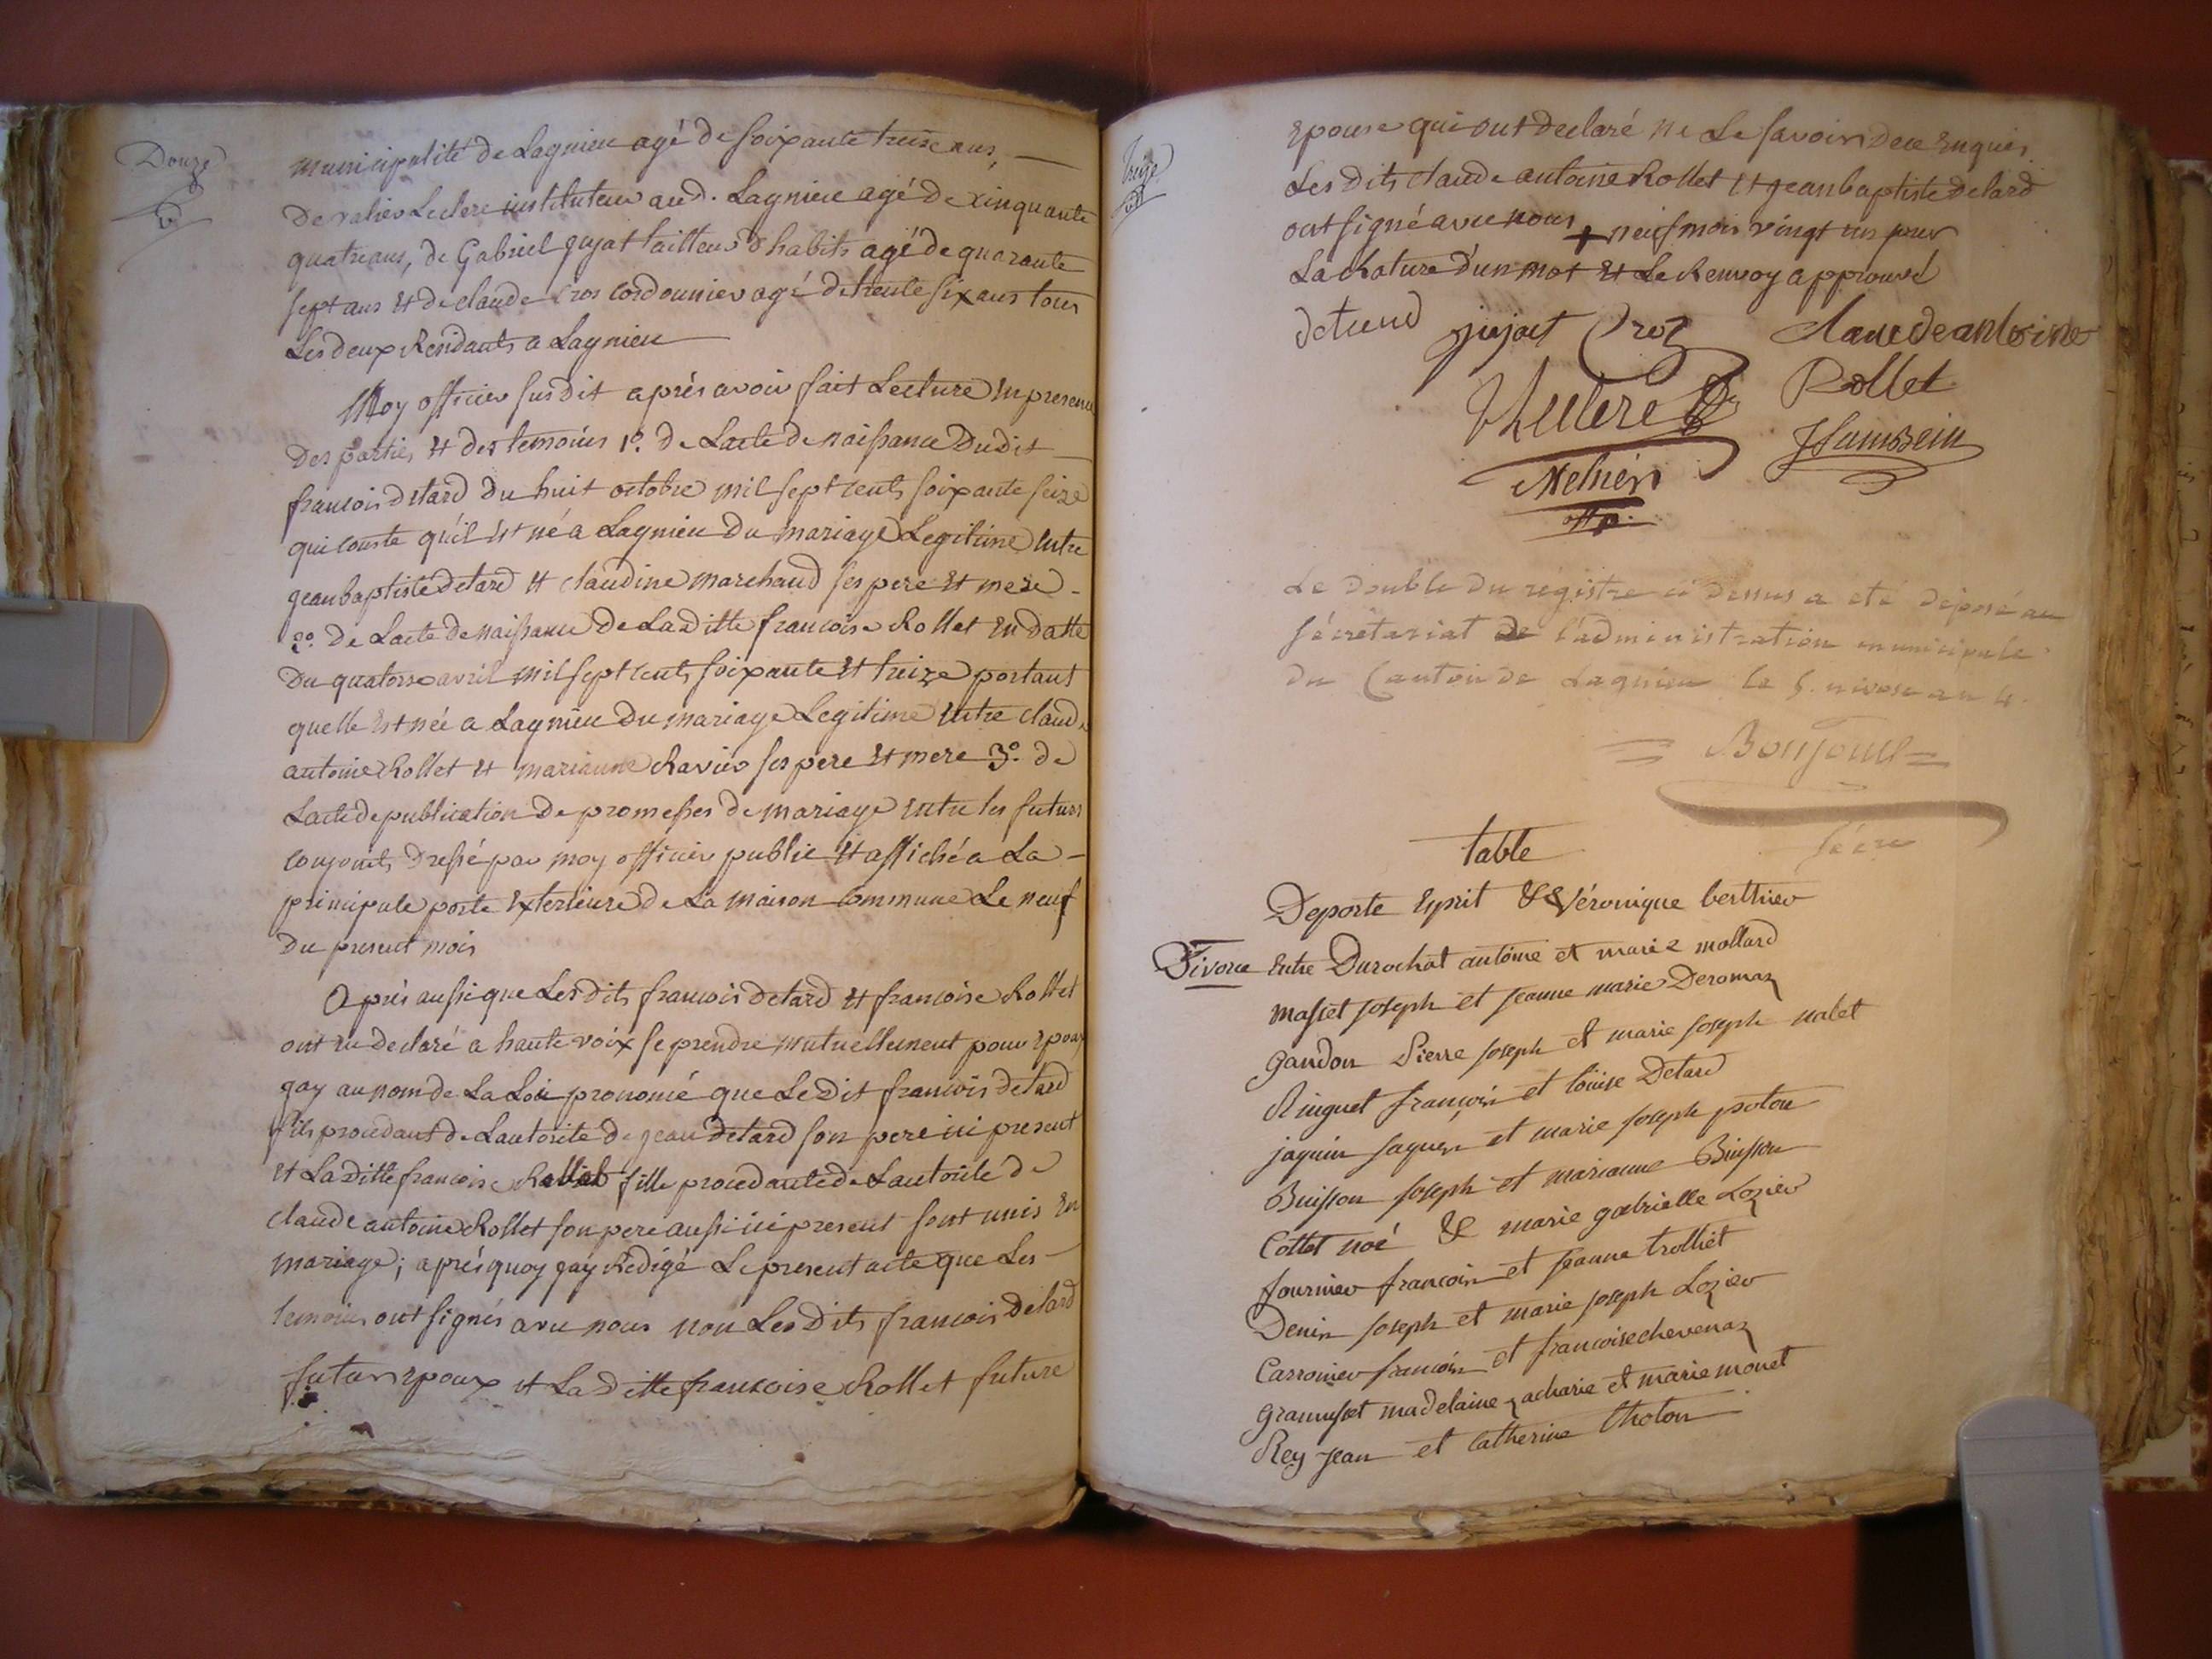 Douze
municipalité de Lagnieu agé de soixante treize ans,
de valier Leclerc instituteur aud. Lagnieu agé de cinquante
quatre ans, de Gabriel gujat tailleur d'habits agé de quarante
sept ans et de claude cros cordonnier agé de trente six ans tous
Les deux Residants a Lagnieu
Moy officier susdit aprés avoir fait Lecture en presence
des parties et des temoins 1º. de Lacte de naissance dudit
francois detard du huit octobre mil sept cents soixante seize
qui conste qu'il est né a Lagnieu du mariage Legitime entre
jean baptiste detard et claudine marchand ses pere et mere
2º. de Lacte de naissance de Laditte francoise Rollet en datte
du quatorze avril mil sept cents soixante et treize portant
quelle est née a Lagnieu du mariage Legitime entre claude
antoine Rollet et marianne Ravier ses pere et mere 3º. de
Lacte de publication de promesses de mariage entre les futurs
conjoints dressé par moy officier public et affiché a La
principale porte exterieure de La maison commune Le neuf
du present mois
Aprés aussi que Lesdits francois detard et francoise Rollet
ont eu declaré a haute voix se prendre mutuellement pour epoux
jay au nom de La Loi prononcé que Ledit francois detard
fils procedant de Lautorité de jean detard son pere ici present
et Laditte francoise Rollet fille procedante de Lautorité de
claude antoine Rollet son pere aussi ici present sont unis en
mariage; aprés quoy jay Redigé Le present acte que Les
temoins ont signés avec nous non Lesdits francois detard
futur epoux et Laditte francoise Rollet future
treize
epouse qui ont declaré ne Le savoir de ce enquis
Lesdits claude antoine Rollet et jean baptiste detard
ont signé avec nous + neuf mois vingt un jour
La Rature d'un mot et Le Renvoy approuvé
detard gujat Croz claudeantoine
Rollet
Leclerc
off p.
Le double du registre ci dessus a eté deposé au
sécrétariat de l'administration municipale
du Canton de Lagnieu le 5. nivose an 4.
= Bonjour =
sécre
table
Deporte Esprit & Véronique berthier
Divorce Entre Durochat antoine et marie mollard
masset joseph et jeanne marie Deromaz
gandon Pierre joseph et marie joseph nalet
Ringuet françois et loüise Detard
jaquin jaques et marie joseph poton
Buisson joseph et marianne Buisson
Cottet noé & marie gabrielle Lozier
fournier francois et jeanne trolliet
Denis joseph et marie joseph Lozier
Carronier francois et francoise chevenaz
granusset madelaine zacharie et marie monet
Rey jean et catherine thoton